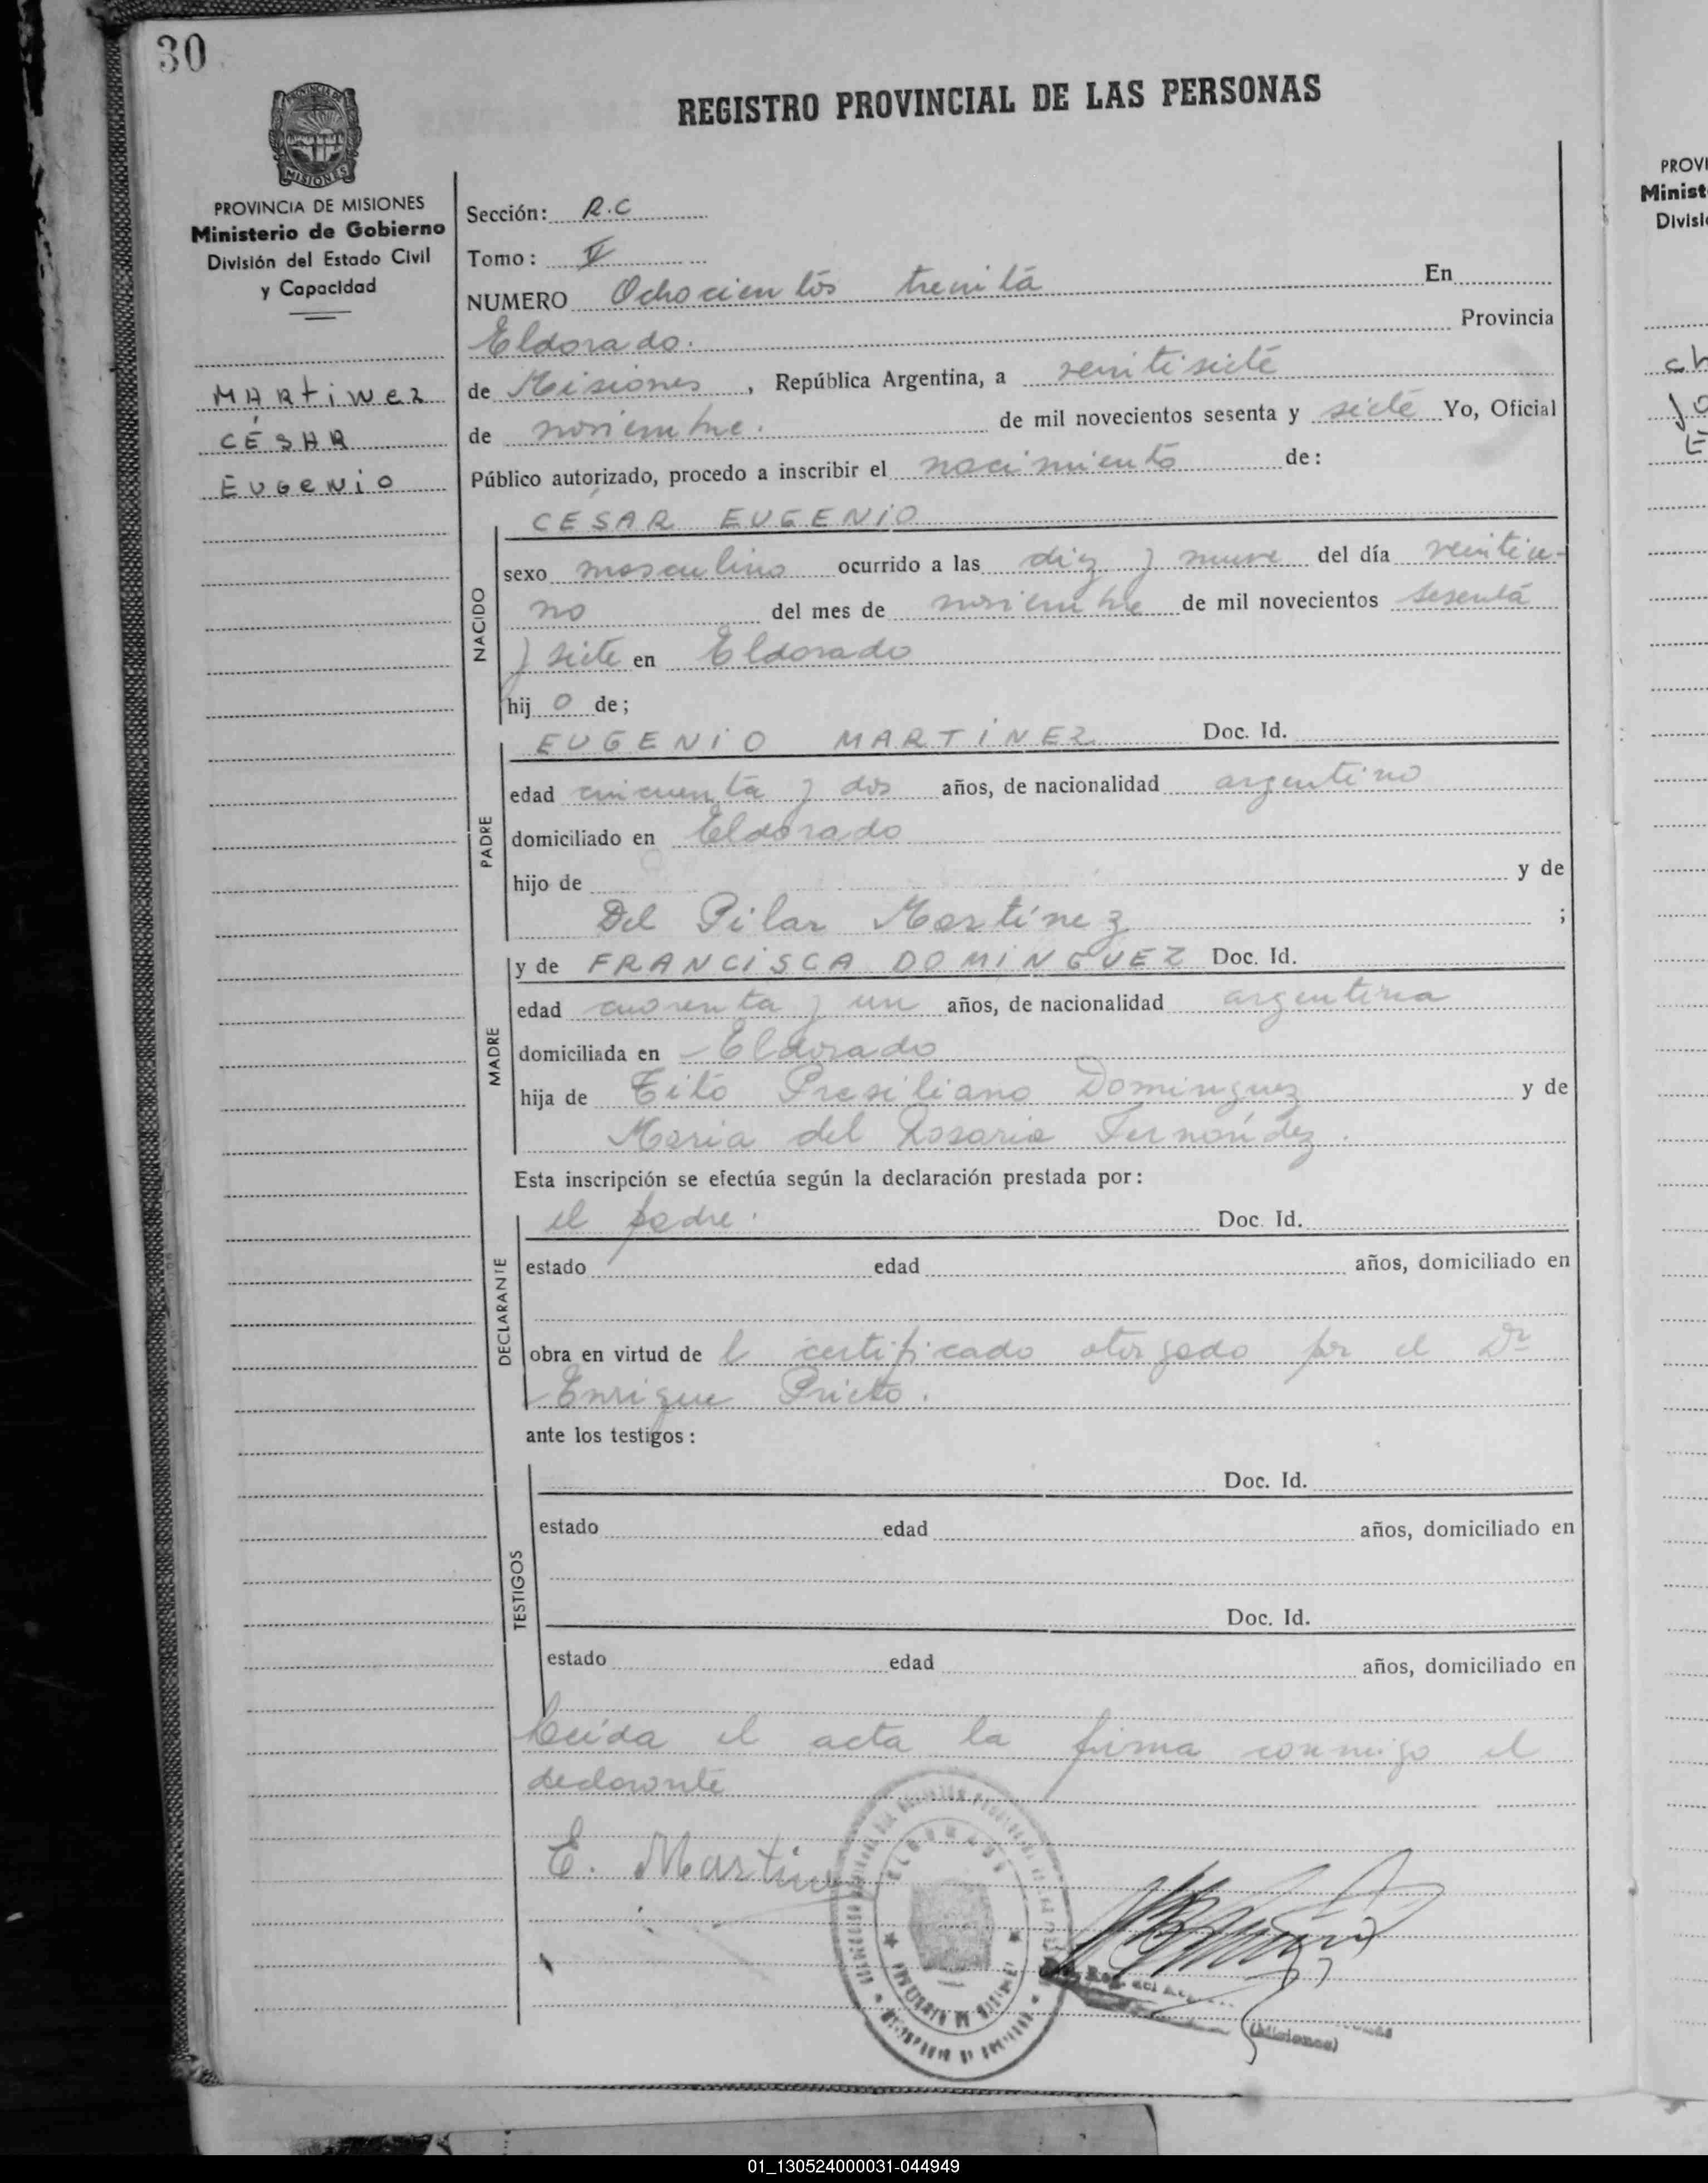 30
REGISTRO PROVINCIAL DE LAS PERSONAS
PROVINCIA DE MISIONES
Ministerio de Gobierno
División del Estado Civil
y Capacidad
MARtiNez
CÉSAR
EUGeNiO
Sección: R.C
Tomo: V
NUMERO Ochocientos treinta En
Eldorado. Provincia
de Misiones, República Argentina, a veintisiete
de noviembre. de mil novecientos sesenta y siete Yo, Oficial
Público autorizado, procedo a inscribir el nacimiento de:
NACIDO
CESAR EUGENIO
sexo masculino ocurrido a las diez y nueve del día veintiu-
no del mes de noviembre de mil novecientos sesenta
y siete en Eldorado
hij o de;
PADRE
EUGENIO MARTINEZ Doc. Id.
edad cincuenta y dos años, de nacionalidad argentino
domiciliado en Eldorado
hijo de y de
Del Pilar Martínez ;
MADRE
y de FRANCISCA DOMINGUEZ Doc. Id.
edad cuarenta y un años, de nacionalidad argentina
domiciliada en Eldorado
hija de Tito Presiliano Dominguez y de
Maria del Rosario Fernández.
Esta inscripción se efectúa según la declaración prestada por:
DECLARANTE
el padre. Doc. Id.
estado edad años, domiciliado en
obra en virtud de l certificado otorgado por el Dr
Enrique Prieto.
ante los testigos:
TESTIGOS
Doc. Id.
estado edad años, domiciliado en
Doc. Id.
estado edad años, domiciliado en
Leída el acta la firma conmigo el
declarante
E. Martinez
ELDORADO
(Misiones)
PROVI
Minist
Divisi
01_130524000031-044949